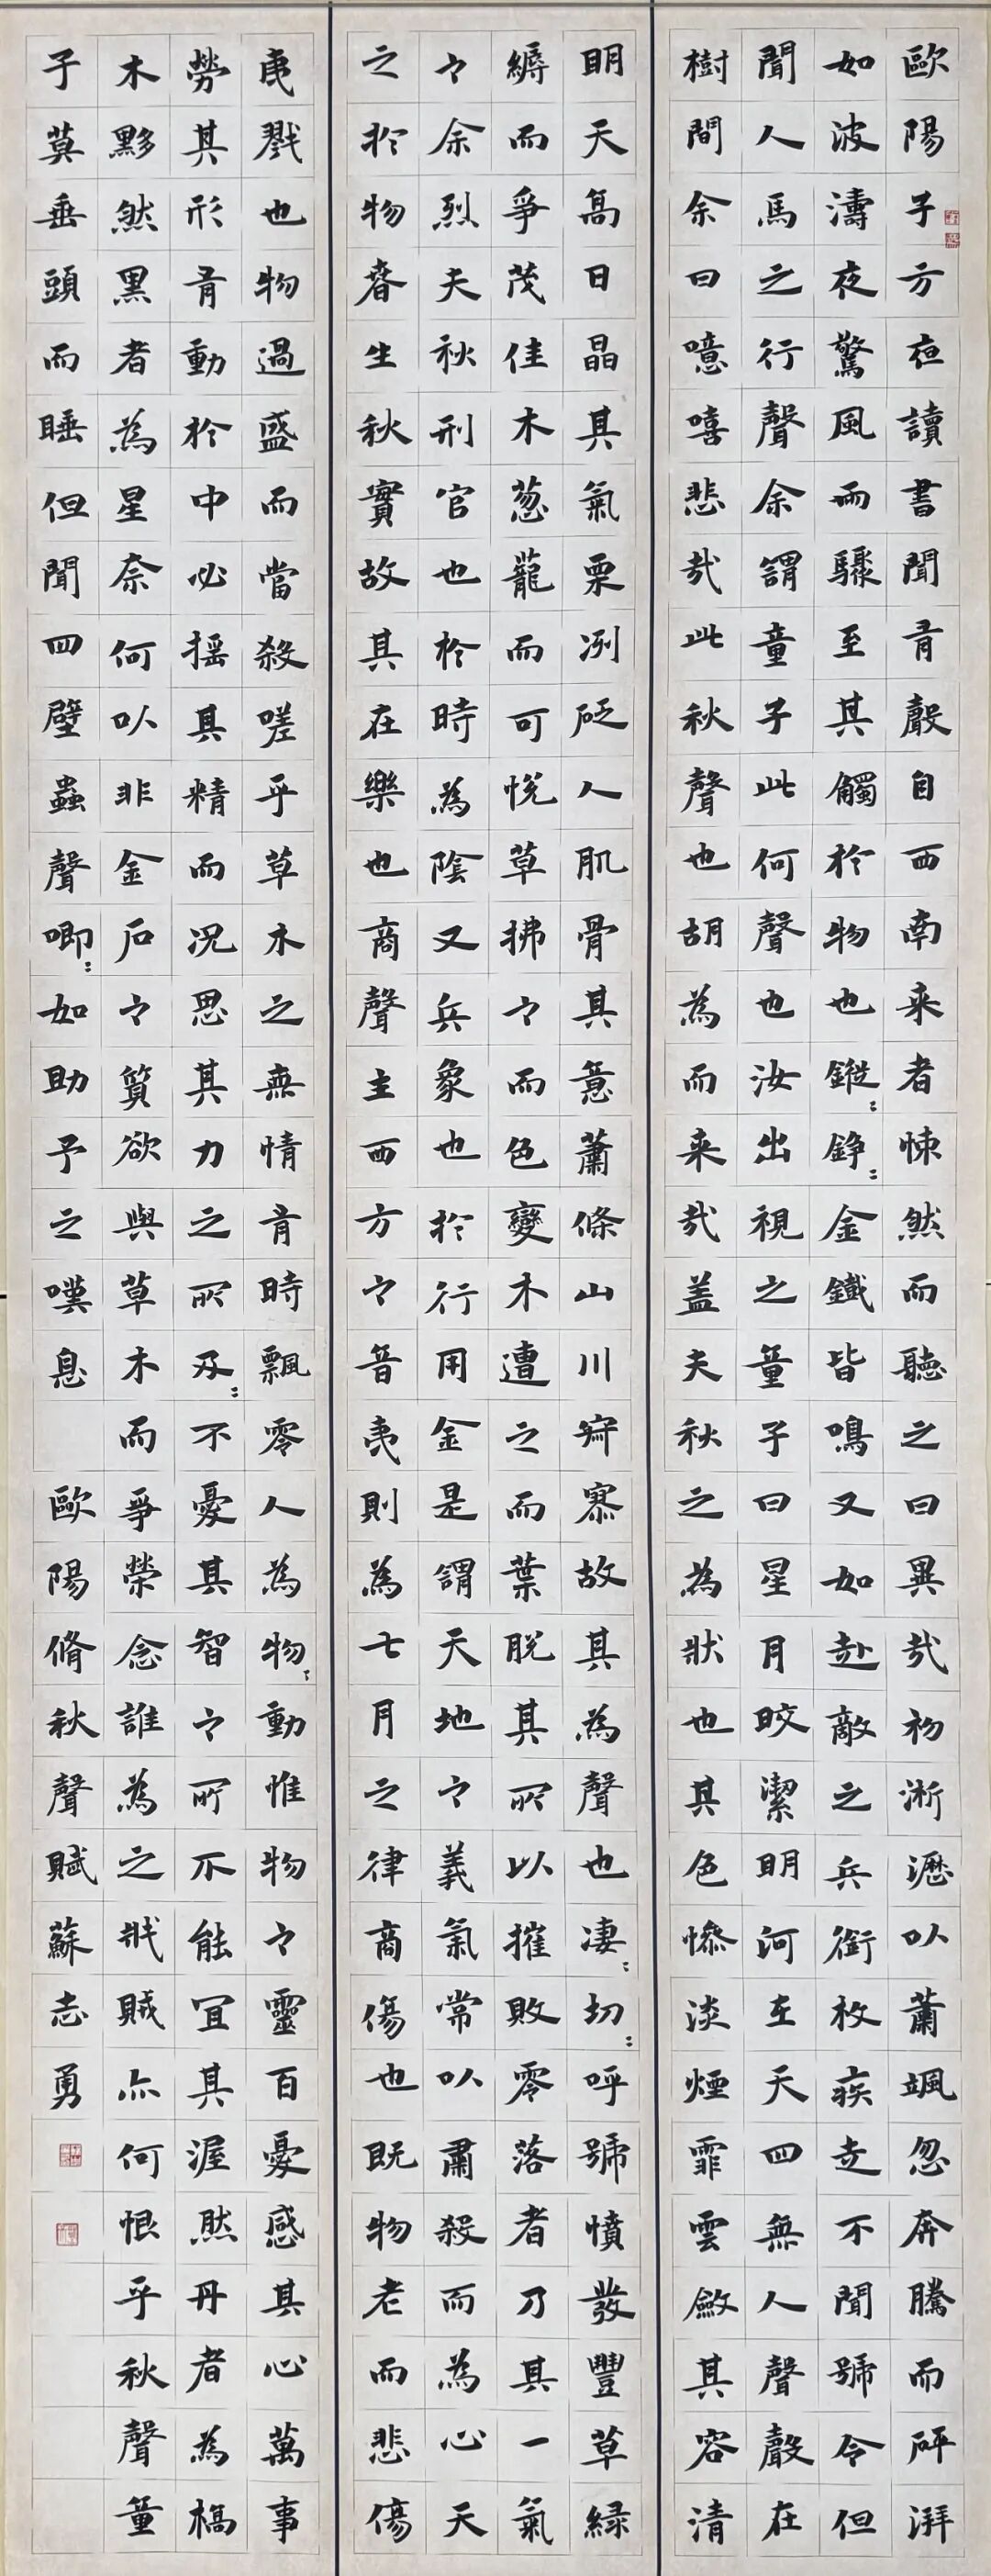 歐陽子方夜讀書聞有聲自西南来者悚然而聽之曰異哉初淅瀝以蕭颯忽奔騰而砰湃
如波濤夜驚風雨驟至其觸於物也鏦〻錚〻金鐵皆鳴又如赴敵之兵銜枚疾走不聞號令但
聞人馬之行聲余謂童子此何聲也汝出視之童子曰星月皎潔明河在天四無人聲聲在
樹間余曰噫嘻悲哉此秋聲也胡為而来哉盖夫秋之為狀也其色慘淡煙霏雲斂其容清
明天高日晶其氣栗冽砭人肌骨其意蕭條山川寂寥故其為聲也淒〻切〻呼號憤發豐草緑
縟而爭茂佳木葱蘢而可悅草拂々而色變木遭之而葉脫其所以摧敗零落者乃其一氣
々余烈夫秋刑官也於時為陰又兵象也於行用金是謂天地々義氣常以肅殺而為心天
之於物春生秋實故其在樂也商聲主西方々音夷則為七月之律商傷也既物老而悲傷
夷戮也物過盛而當殺嗟乎草木之無情有時飄零人為物動惟物々靈百憂感其心萬事
勞其形有動於中必搖其精而况思其力之所及〻不憂其智々所不能宜其渥然丹者為槁
木黟然黑者為星奈何以非金石々質欲與草木而爭榮念誰為之戕賊亦何恨乎秋聲童
子莫垂頭而睡但聞四壁蟲聲唧〻如助予之嘆息 歐陽脩秋聲賦蘇志勇